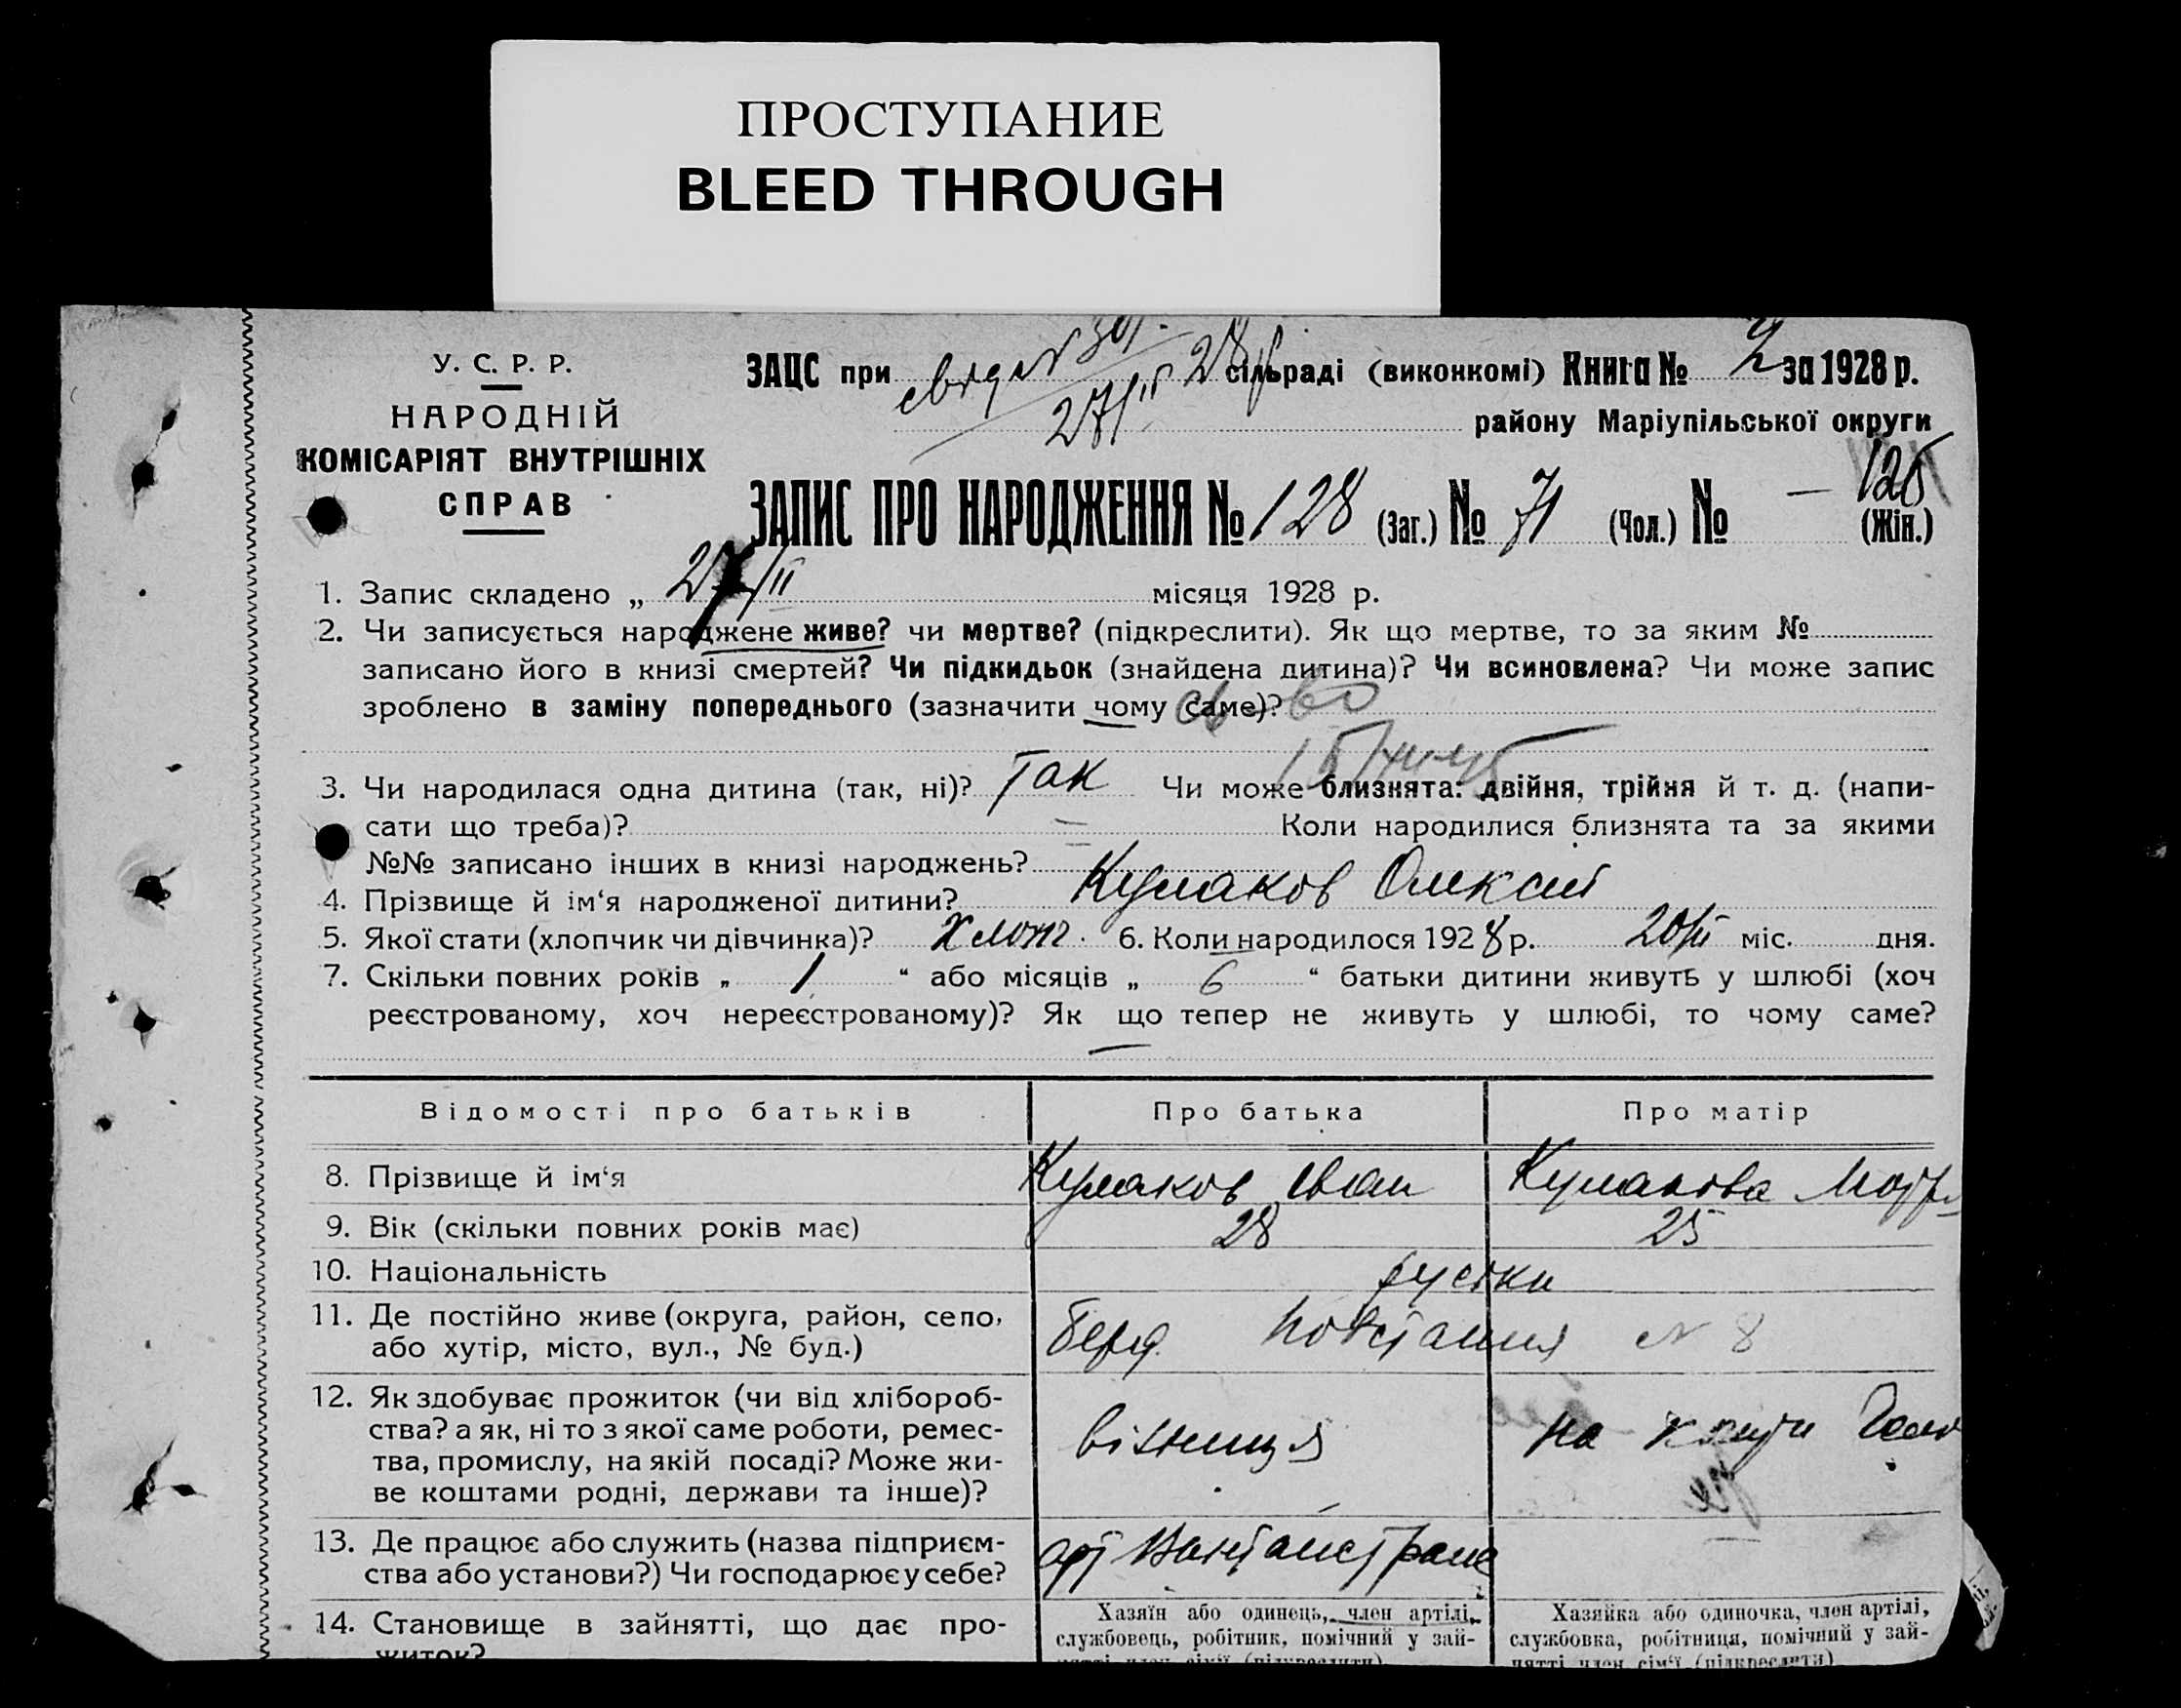 ПРОСТУПАНИЕ
BLEED THROUGH
У. С. Р. Р.
НАРОДНІЙ
КОМІСАРІЯТ ВНУТРІШНІХ
СПРАВ
ЗАЦС при сільраді (виконкомі) Книга № 2 за 1928 р.
27/II
району Маріупільської округи
125
ЗАПИС ПРО НАРОДЖЕННЯ № 128 (Заг.) № 71 (Чол.) № – (Жін.)
1. Запис складено „ 27/II місяця 1928 р.
2. Чи записується народжене живе? чи мертве? (підкреслити). Як що мертве, то за яким №
записано його в книзі смертей? Чи підкидьок (знайдена дитина)? Чи всиновлена? Чи може запис
зроблено в заміну попереднього (зазначити чому саме)?
3. Чи народилася одна дитина (так, ні)? Так Чи може близнята: двійня, трійня й т. д. (напи-
сати що треба)? Коли народилися близнята та за якими
№№ записано інших в книзі народжень?
4. Прізвище й ім‘я народженої дитини? Кулаков Олексій
5. Якої стати (хлопчик чи дівчинка)? хлопч. 6. Коли народилося 1928 р. 20/II міс. дня.
7. Скільки повних років „ 1 “ або місяців „ 6 “ батьки дитини живуть у шлюбі (хоч
реєстрованому, хоч нереєстрованому)? Як що тепер не живуть у шлюбі, то чому саме?
Відомості про батьків Про батька Про матір
8. Прізвище й ім‘я Кулаков Іван Кулакова
9. Вік (скільки повних років має) 28 25
10. Національність руські
11. Де постійно живе (округа, район, село,
або хутір, місто, вул., № буд.) Берд. Повстання N 8
12. Як здобуває прожиток (чи від хлібороб-
ства? а як, ні то з якої саме роботи, ремес-
тва, промислу, на якій посаді? Може жи-
ве коштами родні, держави та інше)? візниця на кошти
13. Де працює або служить (назва підприєм-
ства або установи?) Чи господарює у себе? арт
14. Становище в зайнятті, що дає про-
житок?
Хазяїн або одинець, член артілі,
службовець, робітник, помічний у зай-
нятті член сім‘ї (підкреслити)
Хазяйка або одиночка, член артілі,
службовка, робітниця, помічний у зай-
нятті член сім‘ї (підкреслити)